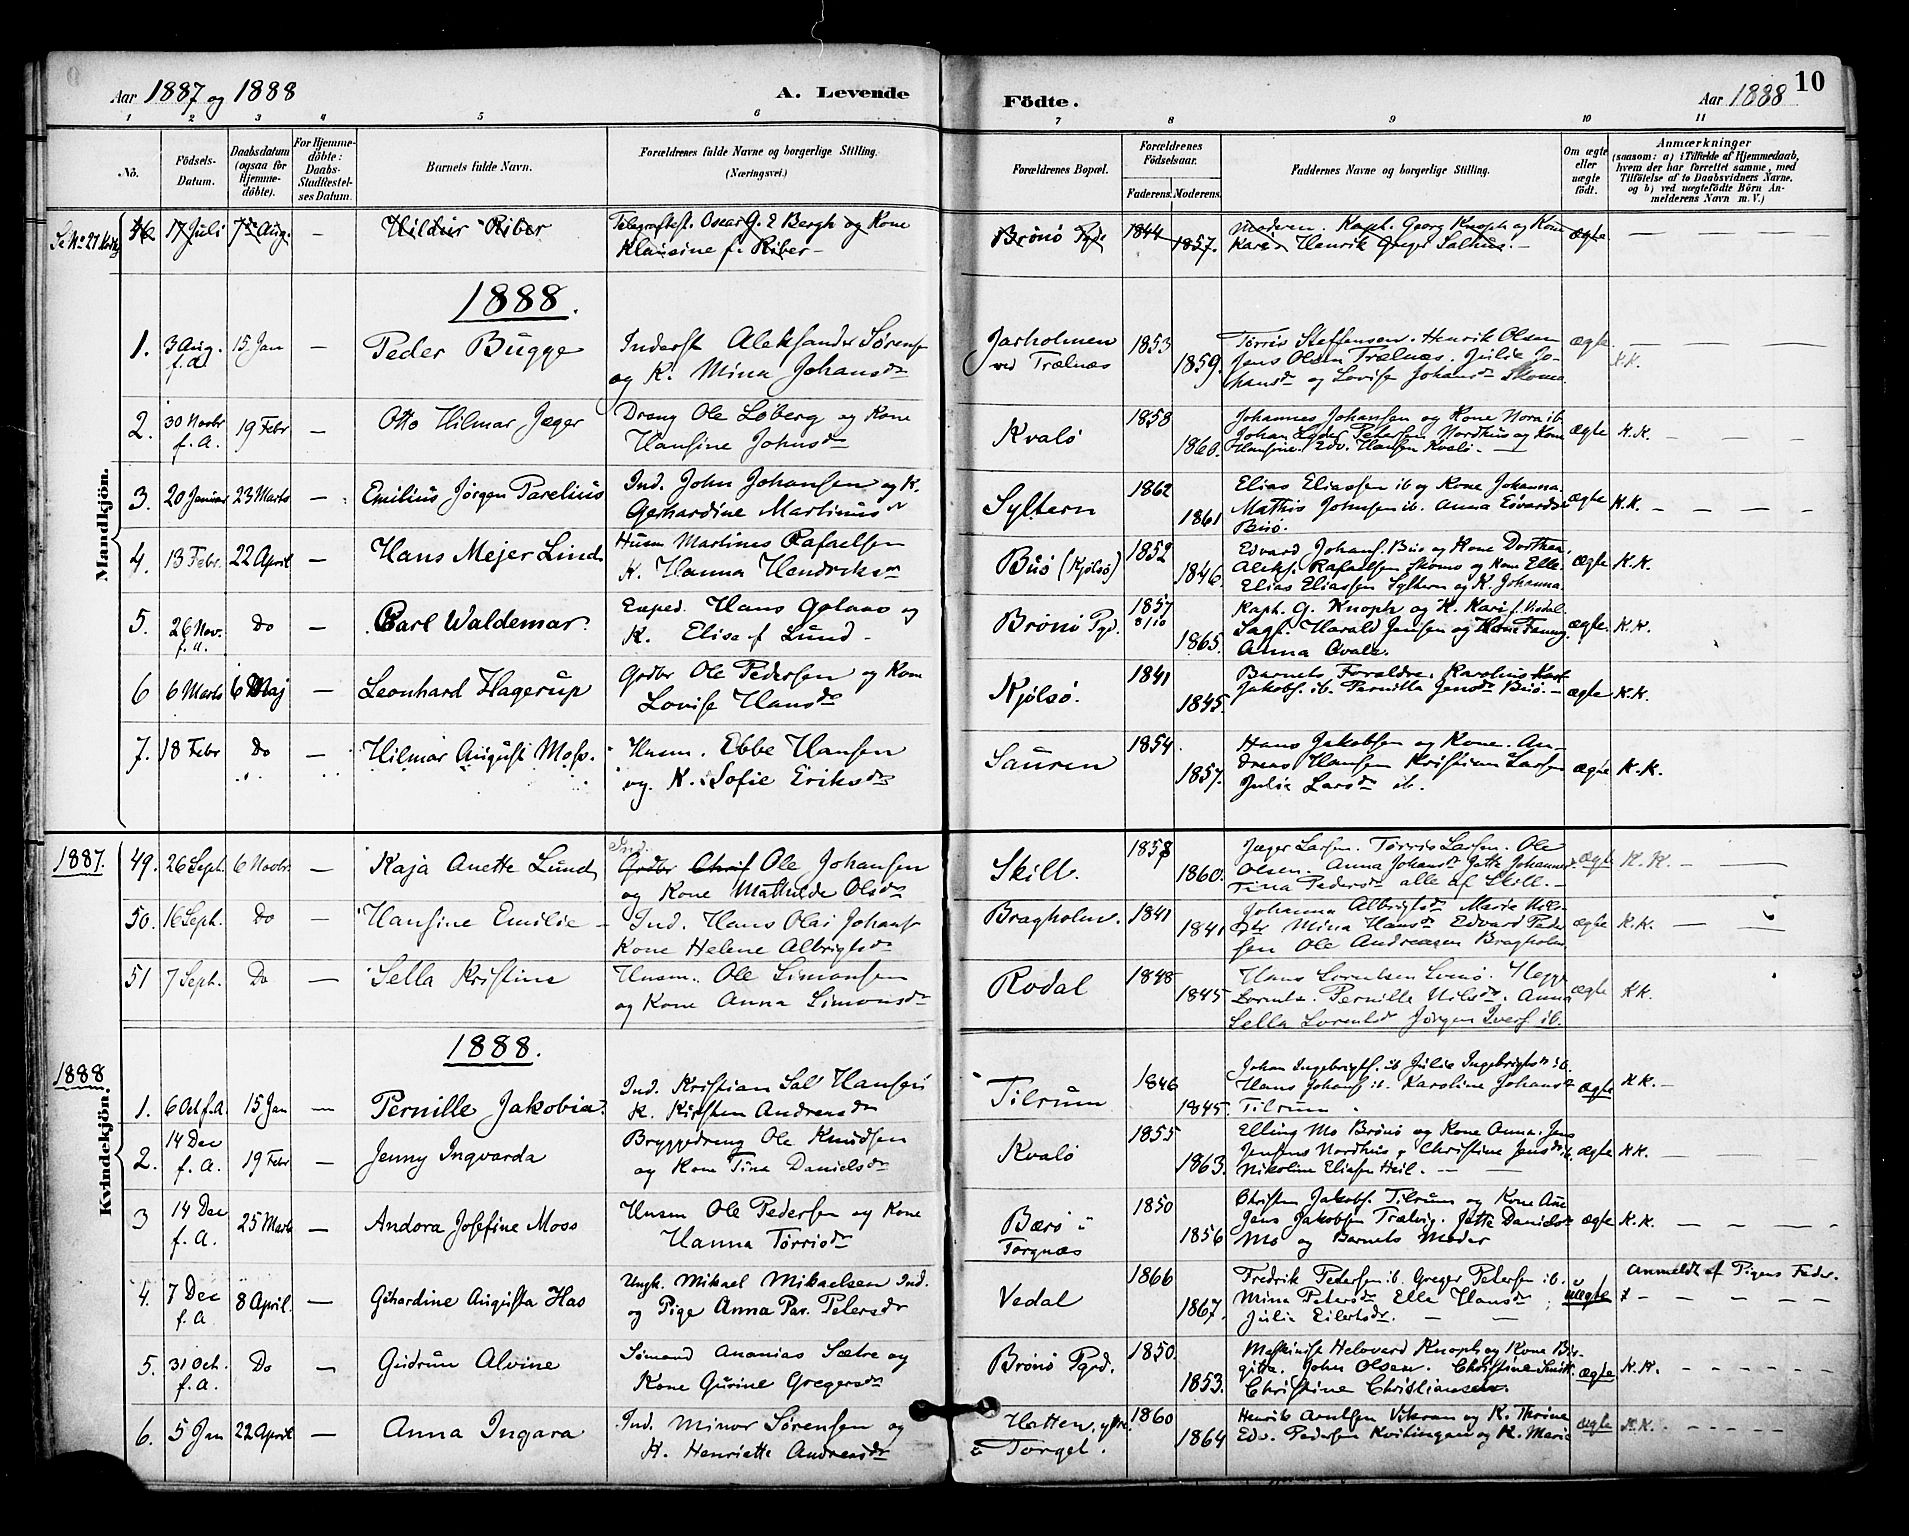 Aar 1887 og 1888 A. Levende Födte. Aar 1888 10
1 2 3 4 5 6 7 8 9 10 11
No. Födsels-Datum. Daabsdatum (ogsaa for Hjemmedöbte). For Hjemmedöbte: Daabs-Stadfæstelses Datum. Barnets fulde Navn. Forældrenes fulde Navne og borgerlige Stilling. (Næringsvei.) Forældrenes Bopæl. Forældrenes Födselsaar. Faderens. Moderens. Faddernes Navne og borgerlige Stilling. Om ægte eller uægte födt. Anmærkninger (saasom: a) i Tilfælde af Hjemmedaab, hvem der har forrettet samme, med Tilföielse af to Daabsvidners Navne, og b) ved uægtefödte Börn Anmelderens Navn m. V.)
17 Juli 7de Aug. – Hildur Riber Telegrafbest. Oscar G. E Bergh og Kone Brönö 1844 Moderen. Kapt. Georg Knoph og Kone ægte
Klausine f. Riber 1857. Kari Henrik Salhus. –
1888.
Mandkjön.
1. 3 Aug. f.A. 15 Jan – Peder Bugge Inderst Aleksander Sörens. Jarholmen 1853 Törris Steffensen. Henrik Olsen ægte
og K. Mina Johansdr ved Trælnæs 1859. Jens Olsen Trælnæs. Julie Jo- K.K.
hansdr og Lovise Johansdr Skomo.
2. 30 Novbr f.A. 19 Febr – Otto Hilmar Jæger Dreng Ole Löberg og Kone Kvalö 1858 Johannes Johansen og Kone Nora ib. ægte K.K.
Hansine Johnsdr 1860. Johan Lyder Petersen Nordhus og Kone
Hansine. Edv. Hansen Kvalö. –
3. 20 Januar 23 Marts – Emilius Jörgen Parelius Ind. John Johansen og K. Syltern 1862 Elias Eliassen ib og Kone Johanna. ægte K.K.
Gerhardine Martinusdr 1861 Mathis Johnsen ib. Anna Edvardsdr
Buö.
4. 13 Febr. 22 April – Hans Mejer Lind Husm Martines Rafaelsen Buö (Kjölsö) 1852 Edvard Johans. Buö og Kone Dorthea, ægte K.K.
K. Hanna Hendriksdr 1846. Aleks. Rafaelsen Skomo og Kone Elle
Elias Eliassen Syltern og K. Johanna
5. 26 Nov. f.a. Do – Carl Waldemar. Exped. Hans Golaas og Brönö Pgd. 1857 8/10 Kapt. G. Knoph og K. Kari f. Visdal ægte K.K.
K. Elisa f Lund – 1865. Sagf. Harald Jensen og Kone Fanny
Anna Qvale.
6 6 Marts 6 Maj – Leonhard Hagerup Grdbr Ole Pedersen og Kone Kjölsö. 1841 Barnets Foraldre. Karolius ægte K.K.
Lovise Hansdr 1845. Jakobs. ib. Pernilla Jensdr Buö. –
7. 18 Febr Do – Hilmar August Moss. Husm. Ebbe Hansen Sauren 1854 Hans Jakobsen og Kone. An- ægte K.K.
og. K. Sofie Eriksdr 1857. dreas Hansen Kristian Larsen
Julie Larsdr ib.
1887. Kvindekjön.
49. 26 Sept. 6 Novbr. – Kaja Anette Lund Ind. Grdbr Christ Ole Johansen Skill. 1858 Jæger Larsen. Törris Larsen. Ole ægte K.K.
og Kone Mathilde Olsdr 1860. Olsen. Anna Johansdr Jette Johannesdr
Tina Pedersdr alle af Skill. –
50. 16 Sept. Do – Hansine Emilie – Ind. Hans Olai Johans. Bragholm. 1841 Johanna Albrigtsdr Marie Nils- ægte K.K.
Kone Helene Albrigtsdr 1841 dtr Mina Hansdr Edvard Peder-
sen Ole Andreasen Bragholm
51 7 Sept. Do – Sella Kristine Husm. Ole Simonsen Rodal 1848 Hans Lorntsen Lomö. ægte K.K.
og Kone Anna Simonsdr 1845 Pernille Nilsdr. Anna
Sella Lorntsdr Jörgen Ivers. ib.
1888.
1888
1. 6 Oct f.A. 15 Jan – Pernille Jakobia. Ind. Kristian Sal Hansen Tilrum 1846 Johan Ingebrigts. ib Julie Ingebrigtsdr ib. ægte K.K. –
K. Kirsten Andreasdr 1845. Hans Johans. ib. Karoline Johansdr
Tilrum
2. 14 Dec f.A. 19 Febr – Jenny Ingvarda Bryggedreng Ole Knudsen Kvalö 1855 Elling Mo Brönö og Kone Anna. Jens ægte K.K.
og Kone Tina Danielsdr 1863. Jensens Nordhus Christine Jensdr ib.
Nikoline Eliasen Heil. –
3 14 Dec f.A. 25 Marts – Andora Josefine Moss Husm Ole Pedersen og Kone Bærö i Torgnæs 1850 Christen Jakobs. Tilrum og Kone Ane ægte K.K.
Hanna Törrisdr 1856 Jens Jakobsen Trælvig. Jette Danielsdr
Mo og Barnets Moder
4. 7 Dec f.A 8 April. – Gerhardine Augusta Has Ungk. Mikael Mikaelsen Ind. Vedal 1866 Fredrik Pedersen ib. Greger Petersen ib. uægte Anmeldt af Pigens Fader.
og Pige Anna Pav. Petersdr 1867. Mina Petersdr Elle Hansdr
Julie Eilertsdr.
5. 31 Oct. f.A. Do – Gudrun Alvine Sömand Ananias Sætre og Brönö Pgrd. 1850. Maskinist Helovard Knoph og Kone Bir- ægte K.K.
Kone Gurine Gregersdr 1853. gitte. John Olsen. Christine Smitt
Christine Christiansen.
6. 5 Jan 22 April – Anna Ingara Ind. Minor Sörensen og Hatten, ytre 1860 Henrik Arntsen Vikran og K. Thrine ægte K.K.
K. Henriette Andreasdr Torget. 1864 Edv. Pedersen Kvitingan og K. Marie